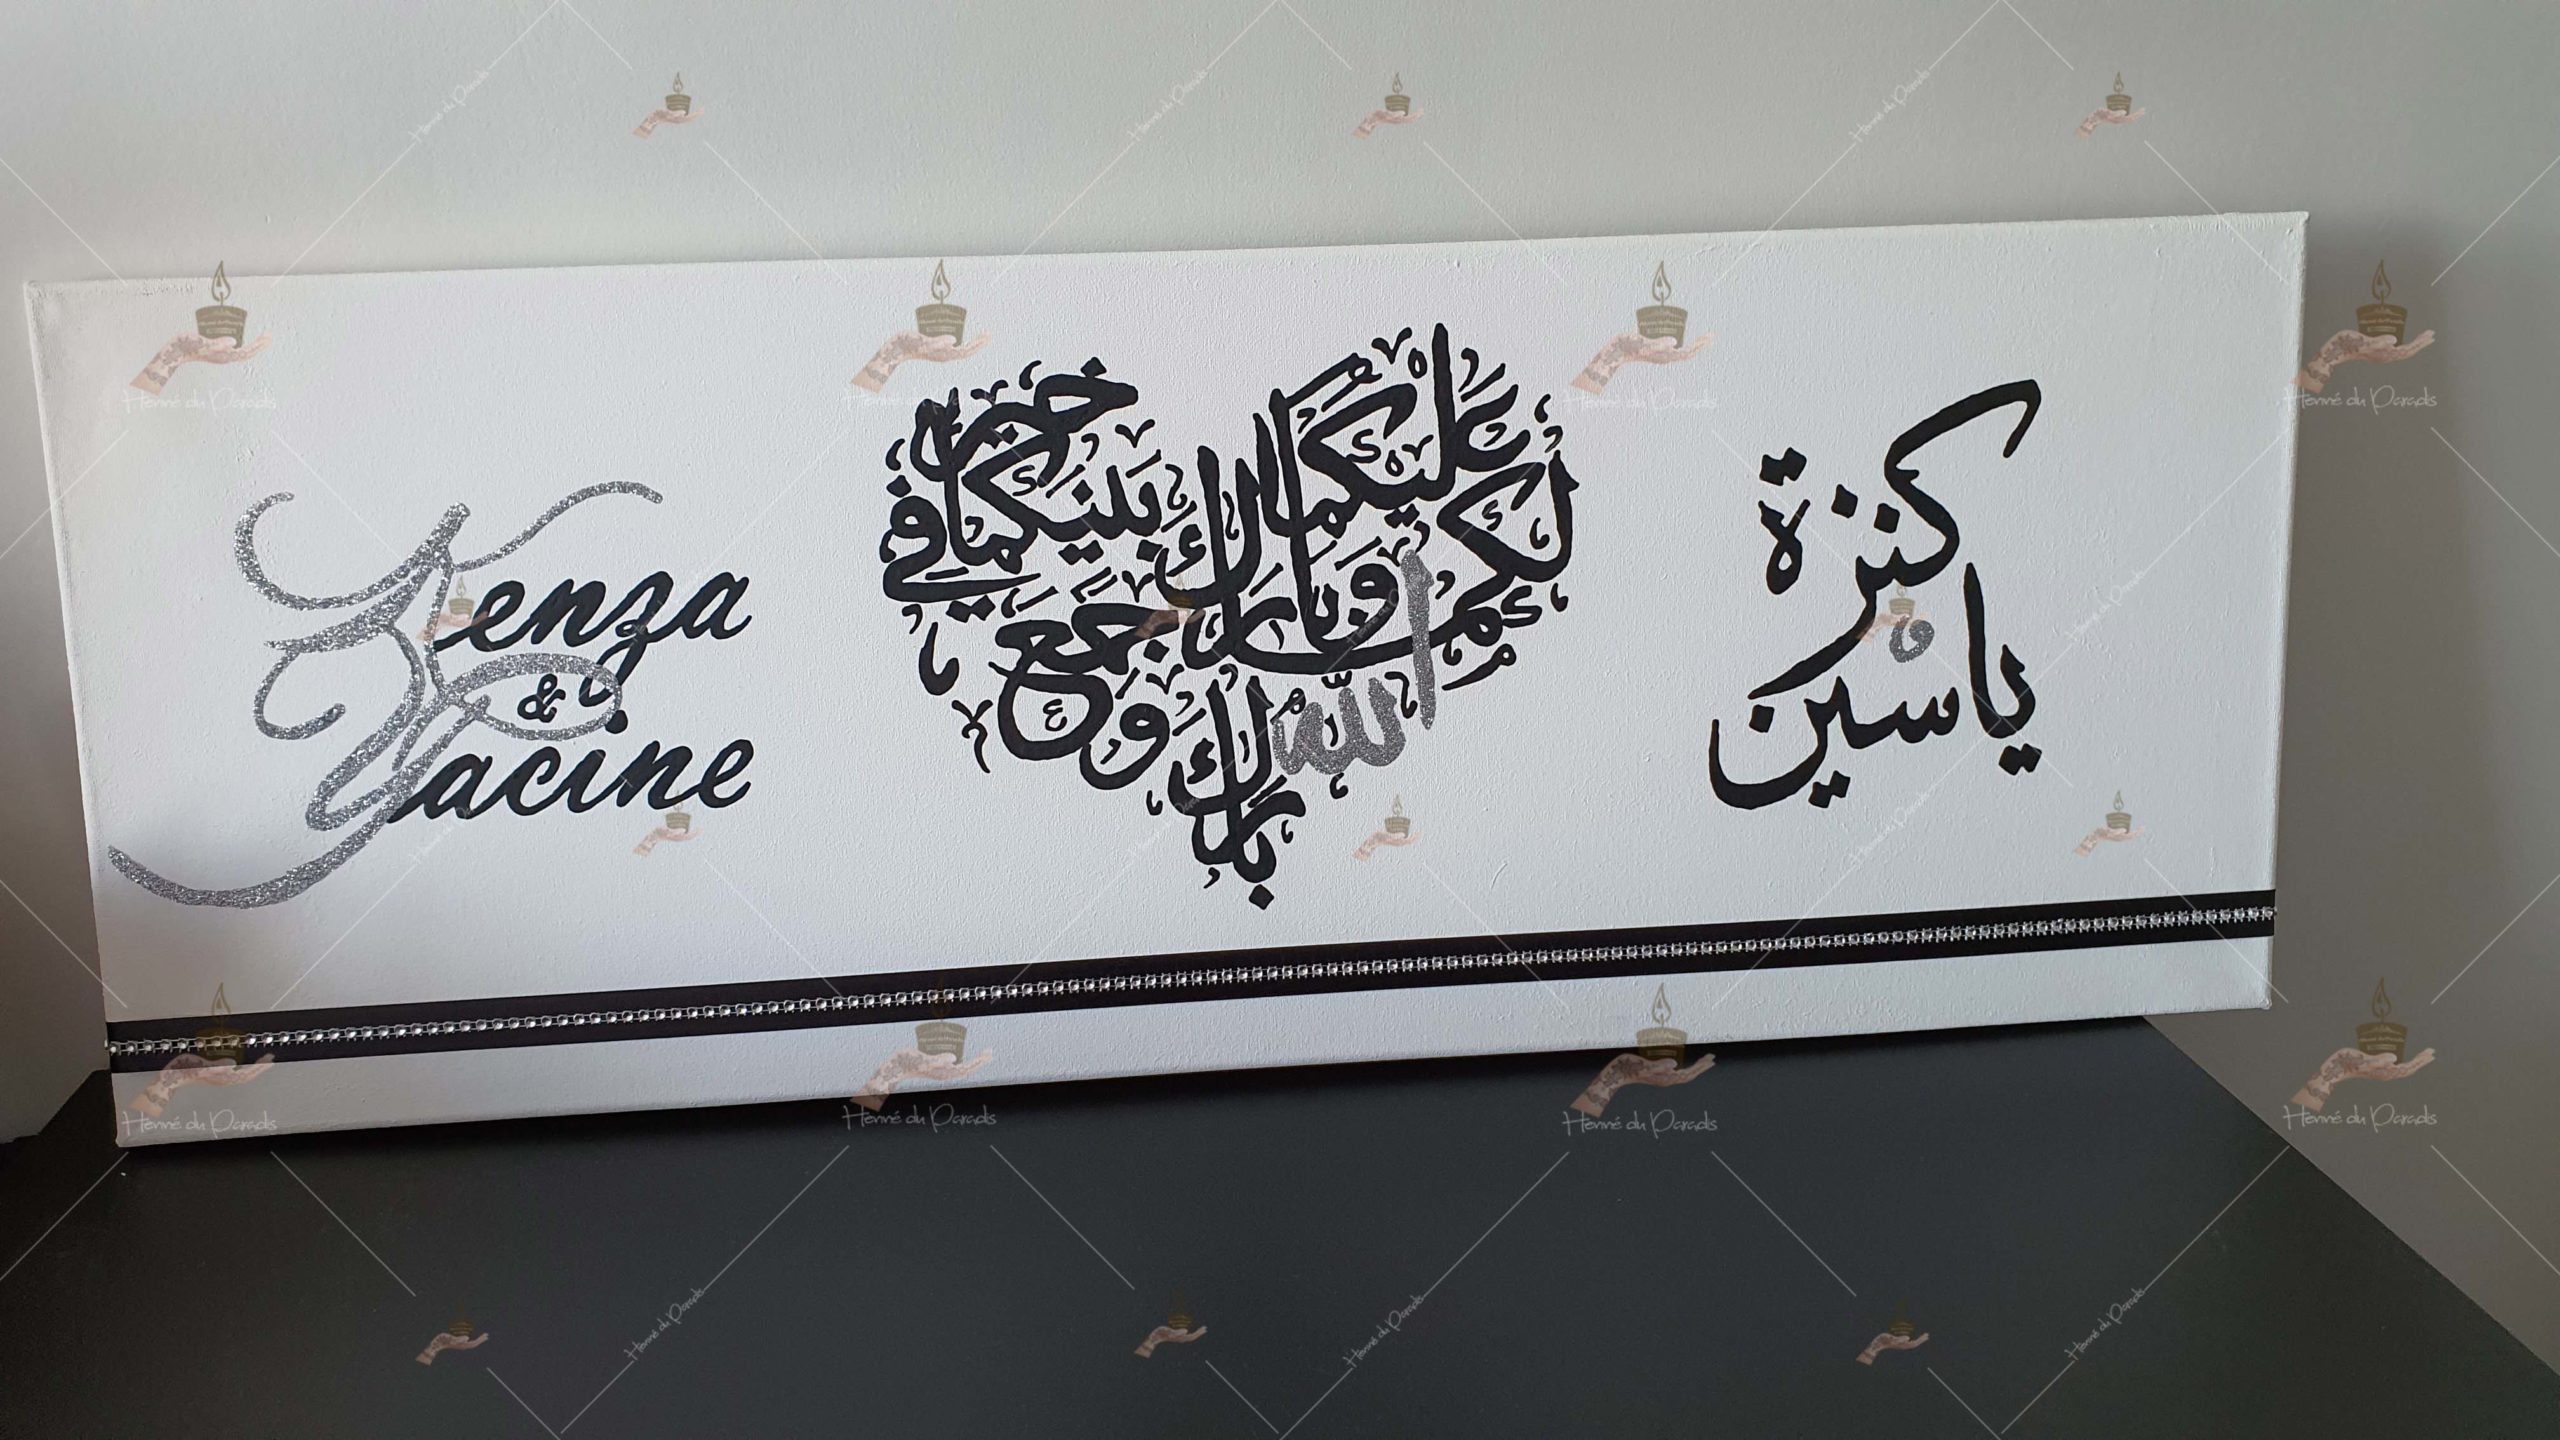 Kenza
&
Yacine
بارك الله لكما وبارك عليكما وجمع بينكما في خير
كنزة
ياسين
Henné du Paradis